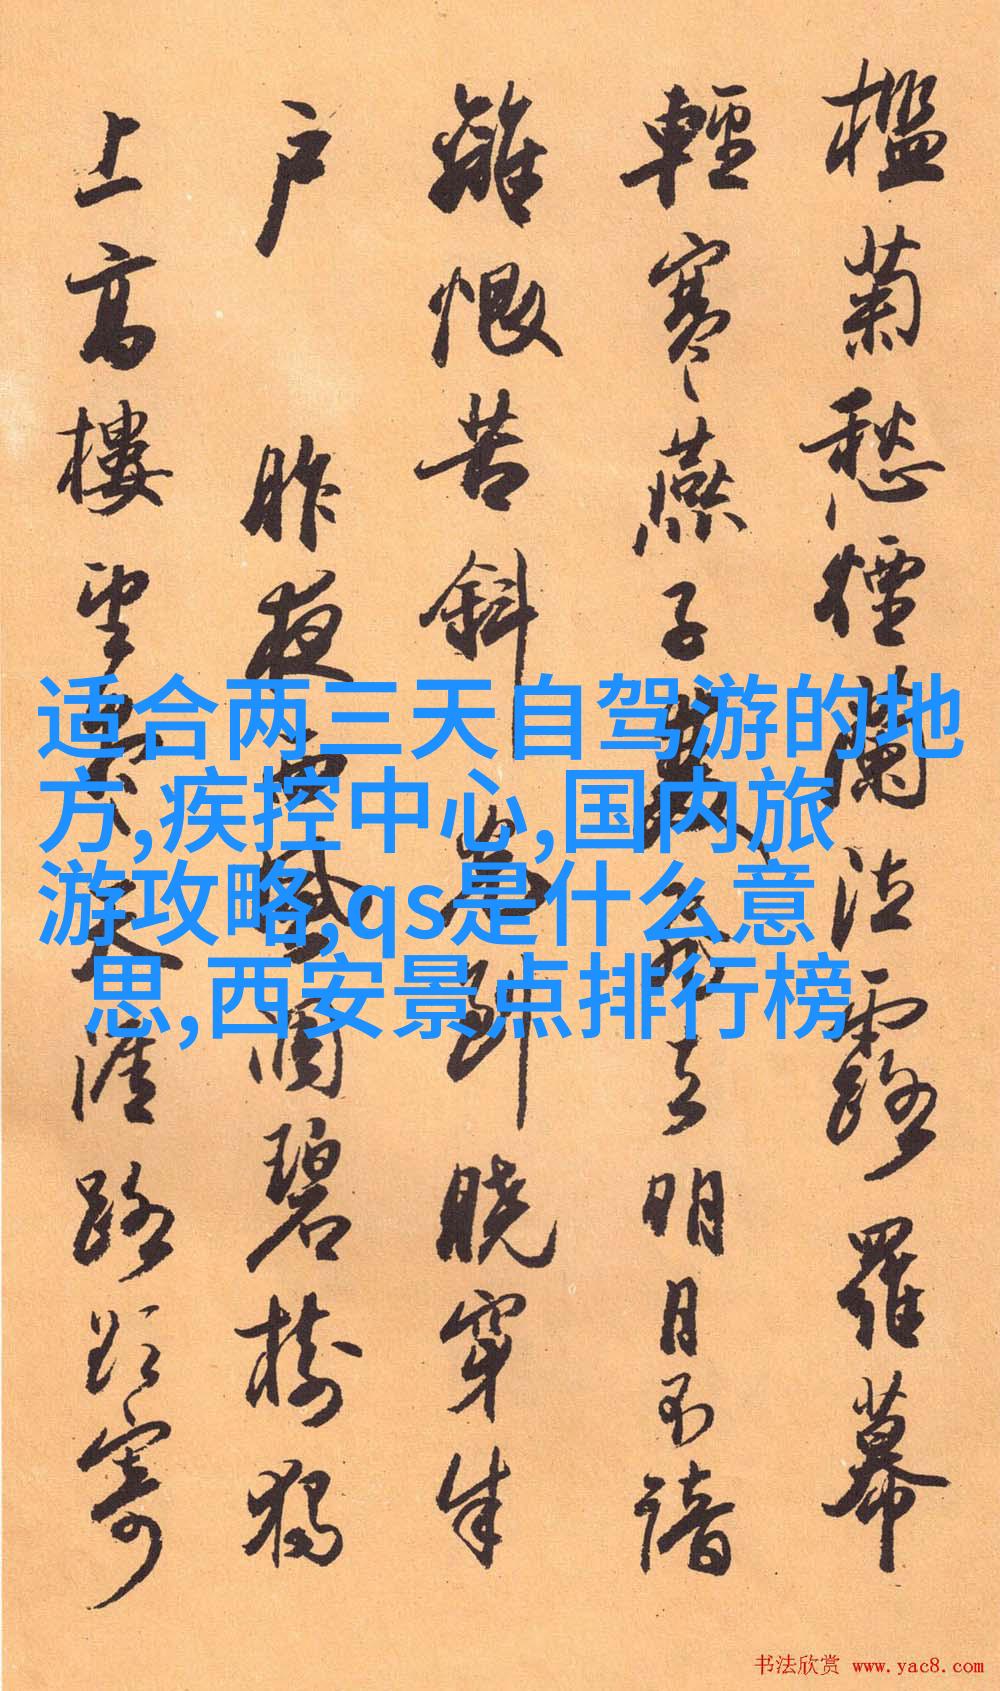 檻菊愁煙蘭泣露羅幕
輕寒燕子雙飛去明月不諳
離恨苦斜光到曉穿朱
户 昨夜西風凋碧樹獨
上高樓望盡天涯路欲寄
适合两三天自驾游的地
方,疾控中心,国内旅
游攻略,qs是什么意
思,西安景点排行榜
书法欣赏 www.yac8.com